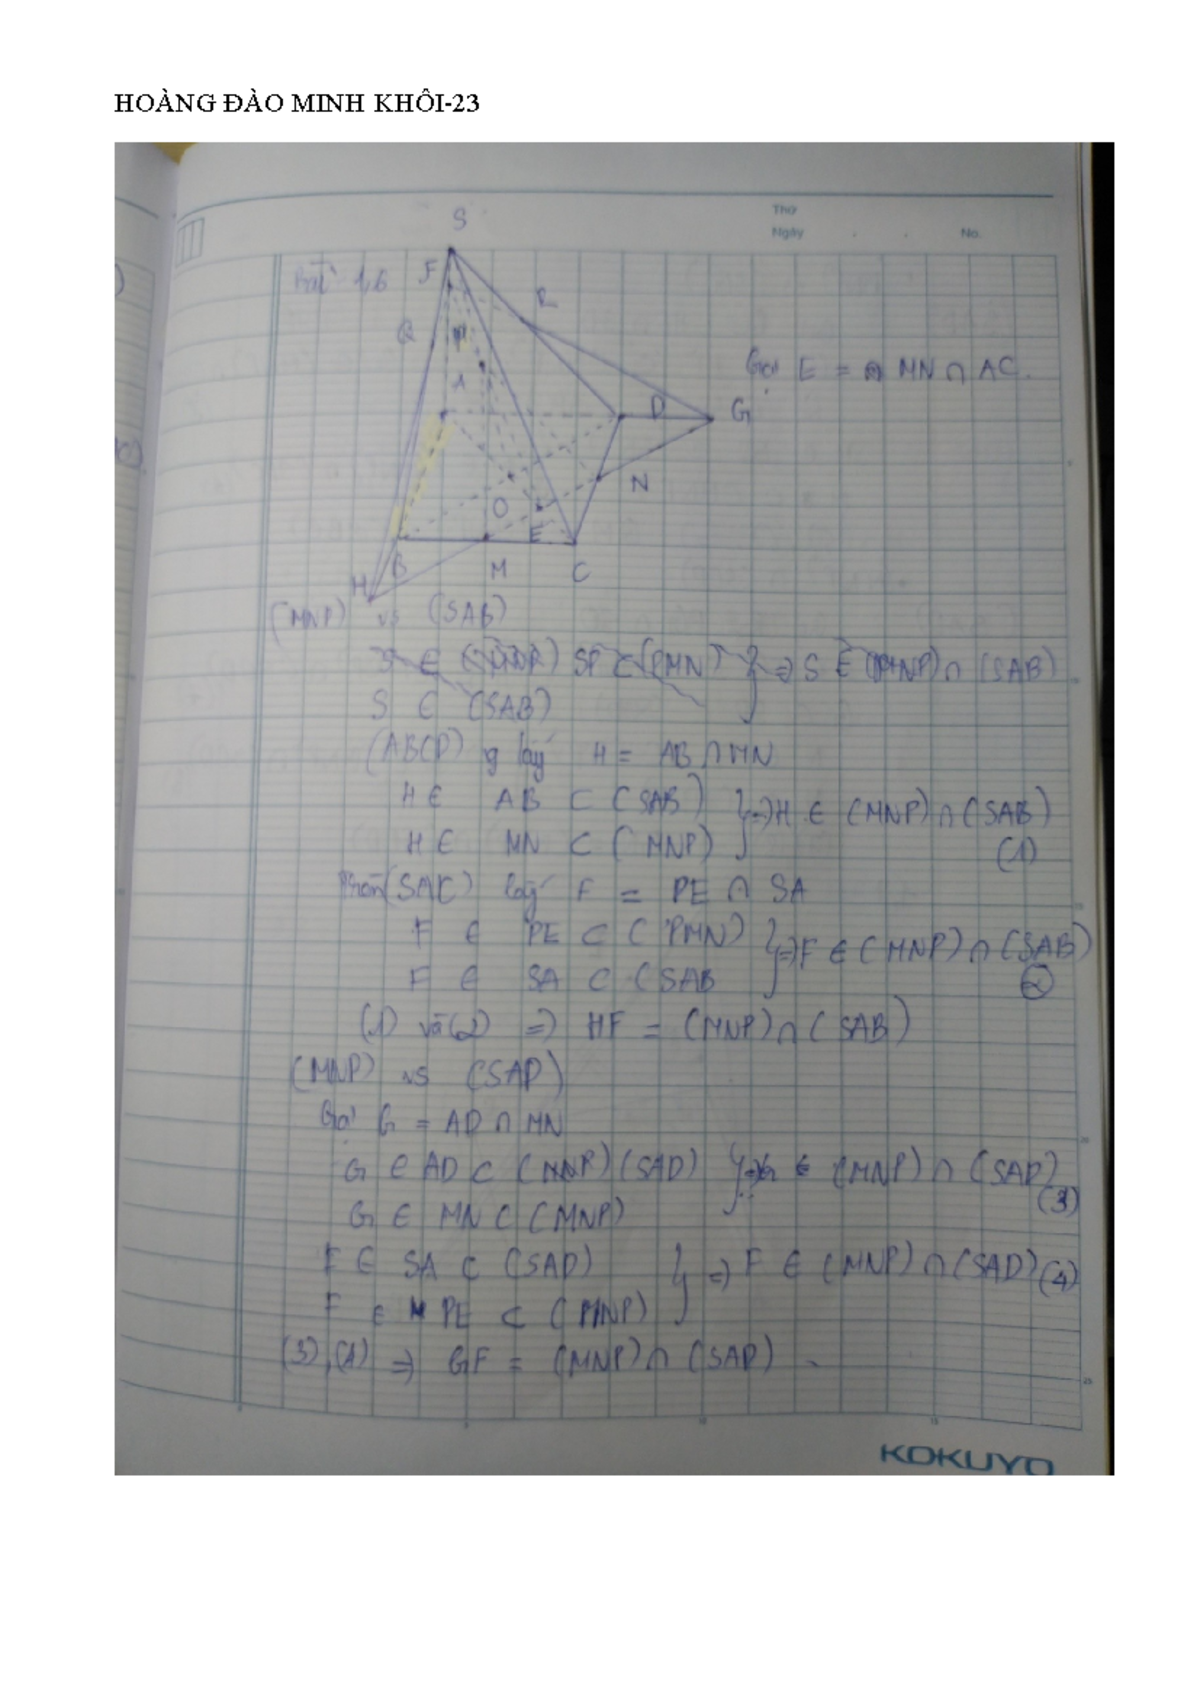 HOÀNG ĐÀO MINH KHÔI-23
Thứ
Ngày . . No.
S
Bài 1,6 F
R
Q P
Gọi E = MN ∩ AC.
A D G
N
O
E
H B M C
(MNP) vs (SAB)
S ∈ SP ⊂ (PMN) } => S ∈ (MNP) ∩ (SAB)
S ⊂ (SAB)
(ABCD) lấy H = AB ∩ MN
H ∈ AB ⊂ (SAB) } => H ∈ (MNP) ∩ (SAB)
H ∈ MN ⊂ (MNP) (1)
Trong (SAC) lấy F = PE ∩ SA
F ∈ PE ⊂ (PMN) } => F ∈ (MNP) ∩ (SAB)
F ∈ SA ⊂ (SAB (2)
(1) và (2) => HF = (MNP) ∩ (SAB)
(MNP) vs (SAD)
Gọi G = AD ∩ MN
G ∈ AD ⊂ (MNP) (SAD) } => G ∈ (MNP) ∩ (SAD)
G ∈ MN ⊂ (MNP) (3)
F ∈ SA ⊂ (SAD) } => F ∈ (MNP) ∩ (SAD) (4)
F ∈ PE ⊂ (MNP)
(3), (4) => GF = (MNP) ∩ (SAD)
KOKUYO